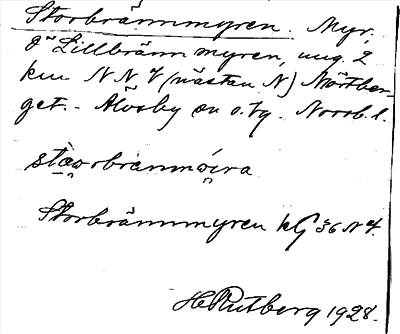 Storbrännmyren. Myr,
o Lillbrännmyren, ung. 2
km N N V (nästan N) Mörtber-
get. - Älvsby sn o. tg. Norrb. l.
Storbrännmyren kG 36 N 4.
H Rutberg 1928.